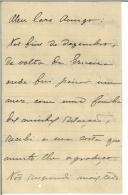 Meu Caro Amigo:
Nos fins de Dezembro,
de volta da Ericeira
onde fui passar um
mez com uma familia
das minhas relações,
recebi a sua carta que
muito lhe agradeço.
Não respondi mais cedo